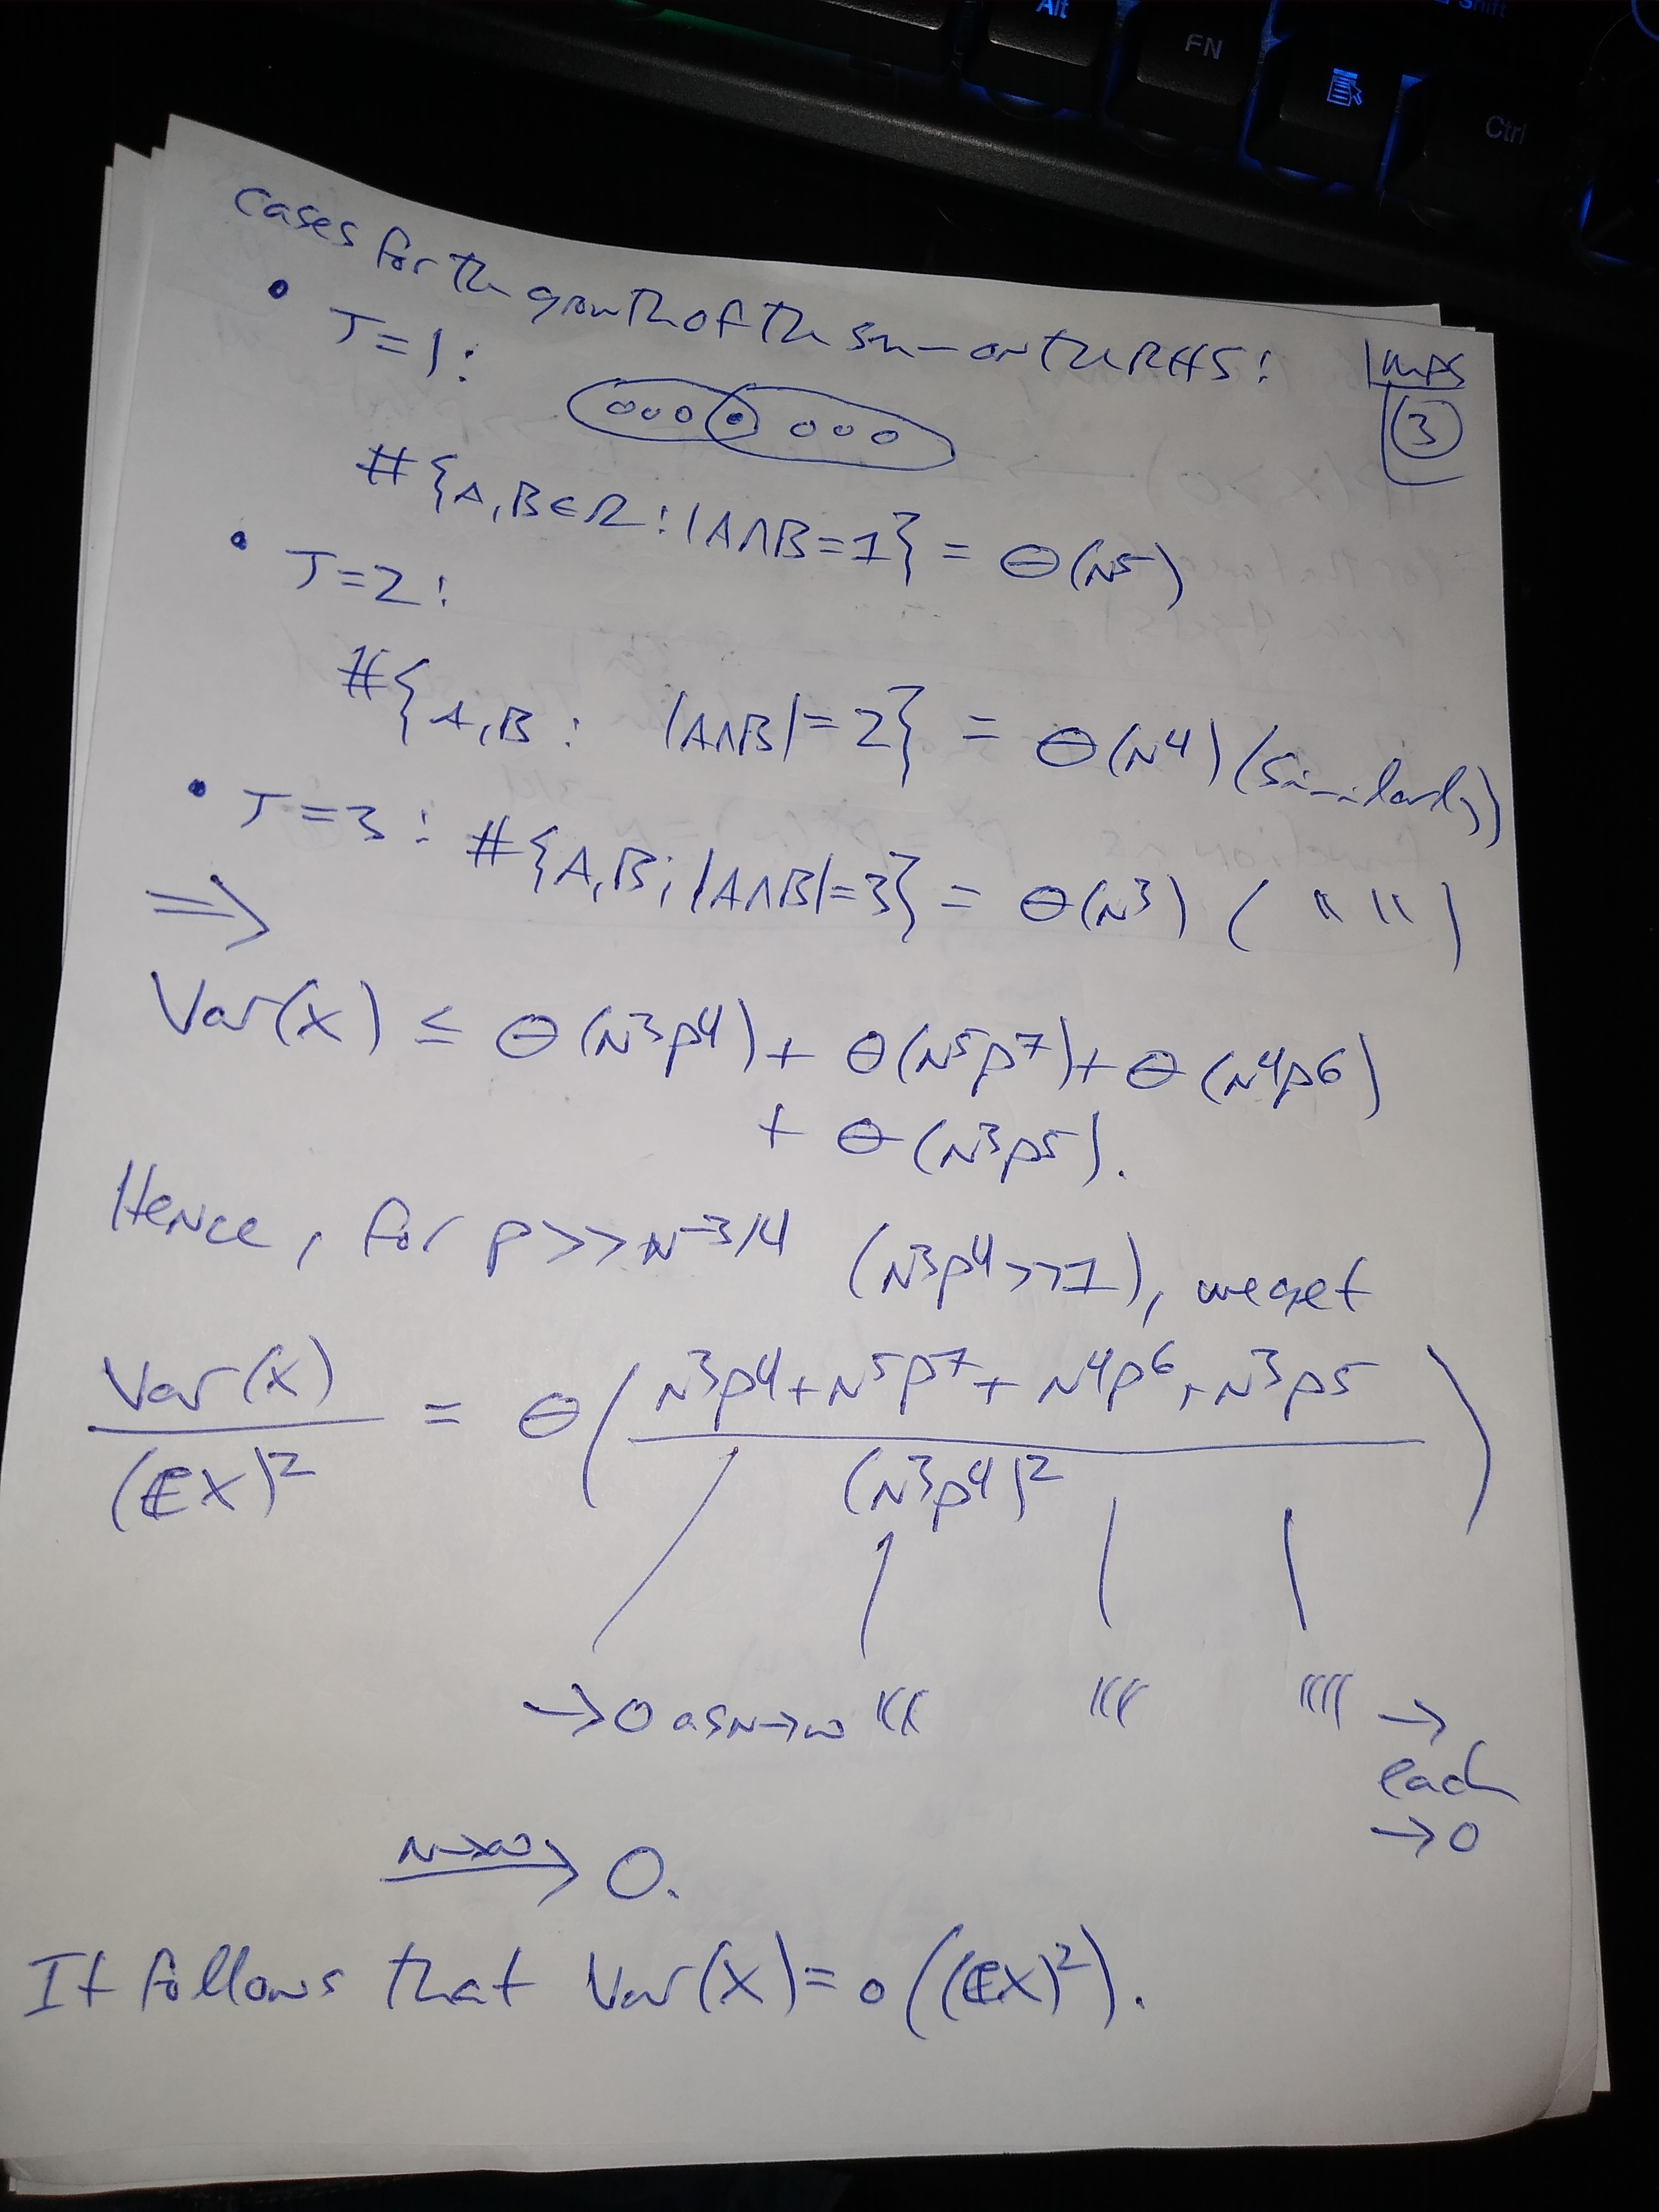 Alt
FN
Shift
Ctrl
Cases for the growth of the sum on the RHS:
• J=1:
③
#{A,B∈Ω:|A∩B=1} = Θ(N⁵)
• J=2:
#{A,B: |A∩B|=2} = Θ(N⁴) (similarly)
• J=3: #{A,B: |A∩B|=3} = Θ(N³) ( " " )
⟹
Var(X) ≤ Θ(N³p⁴) + Θ(N⁵p⁷) + Θ(N⁴p⁶)
+ Θ(N³p⁵).
Hence, for p>>N^-3/4 (N³p⁴>>1), we get
Var(X)/(𝔼X)² = Θ( (N³p⁴+N⁵p⁷+N⁴p⁶+N³p⁵)/(N³p⁴)² )
→0 as N→∞ " " " →
each
→0
N→∞ → 0.
It follows that Var(X)=o((𝔼X)²).